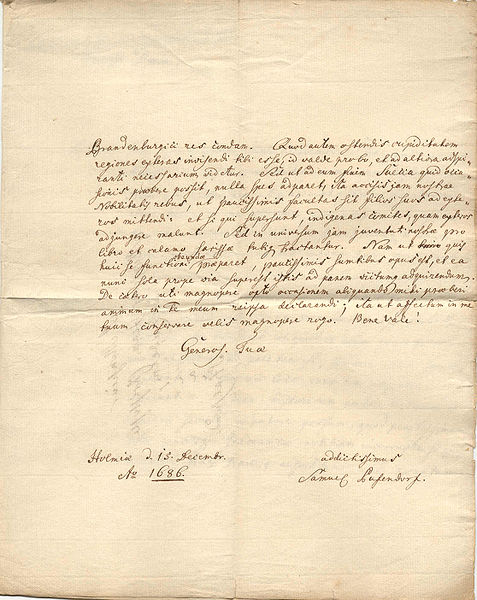 Brandenburgici res condam. Quod autem ostendis cupiditatem
regiones exteras invisendi tibi esse, id valde probo, et ad altiora adspi-
ranti necessarium videtur. Sed ut ad eum finem Suecia quid
praebere possit, nulla spes adparet, ita accisis jam nostrae
Nobilitatis rebus, ut paucissimis facultas sit filios suos ad exte-
ros mittendi: et si qui supersunt, indigenas comites, quam exteros
adjungere malunt. Est in universum jam juventuti nostrae pro
libro et calamo sarissae tubaeq tractantur. Nam ut quis
huic se functioni praeparet, paucissimis sumtibus opus est, et ea
nunc sola prope via superest istis ad panem victumq adquirendum.
De caetero uti magnopere opto occasionem aliquando mihi praeberi
animum in Te meum reipsa declarandi; ita ut affectum in me
tuum conservare velis magnopere rogo. Bene Vale!
Generos. Tuae
Holmiae d. 15. Decembr. addictissimus
Ao 1686. Samuel Pufendorf.